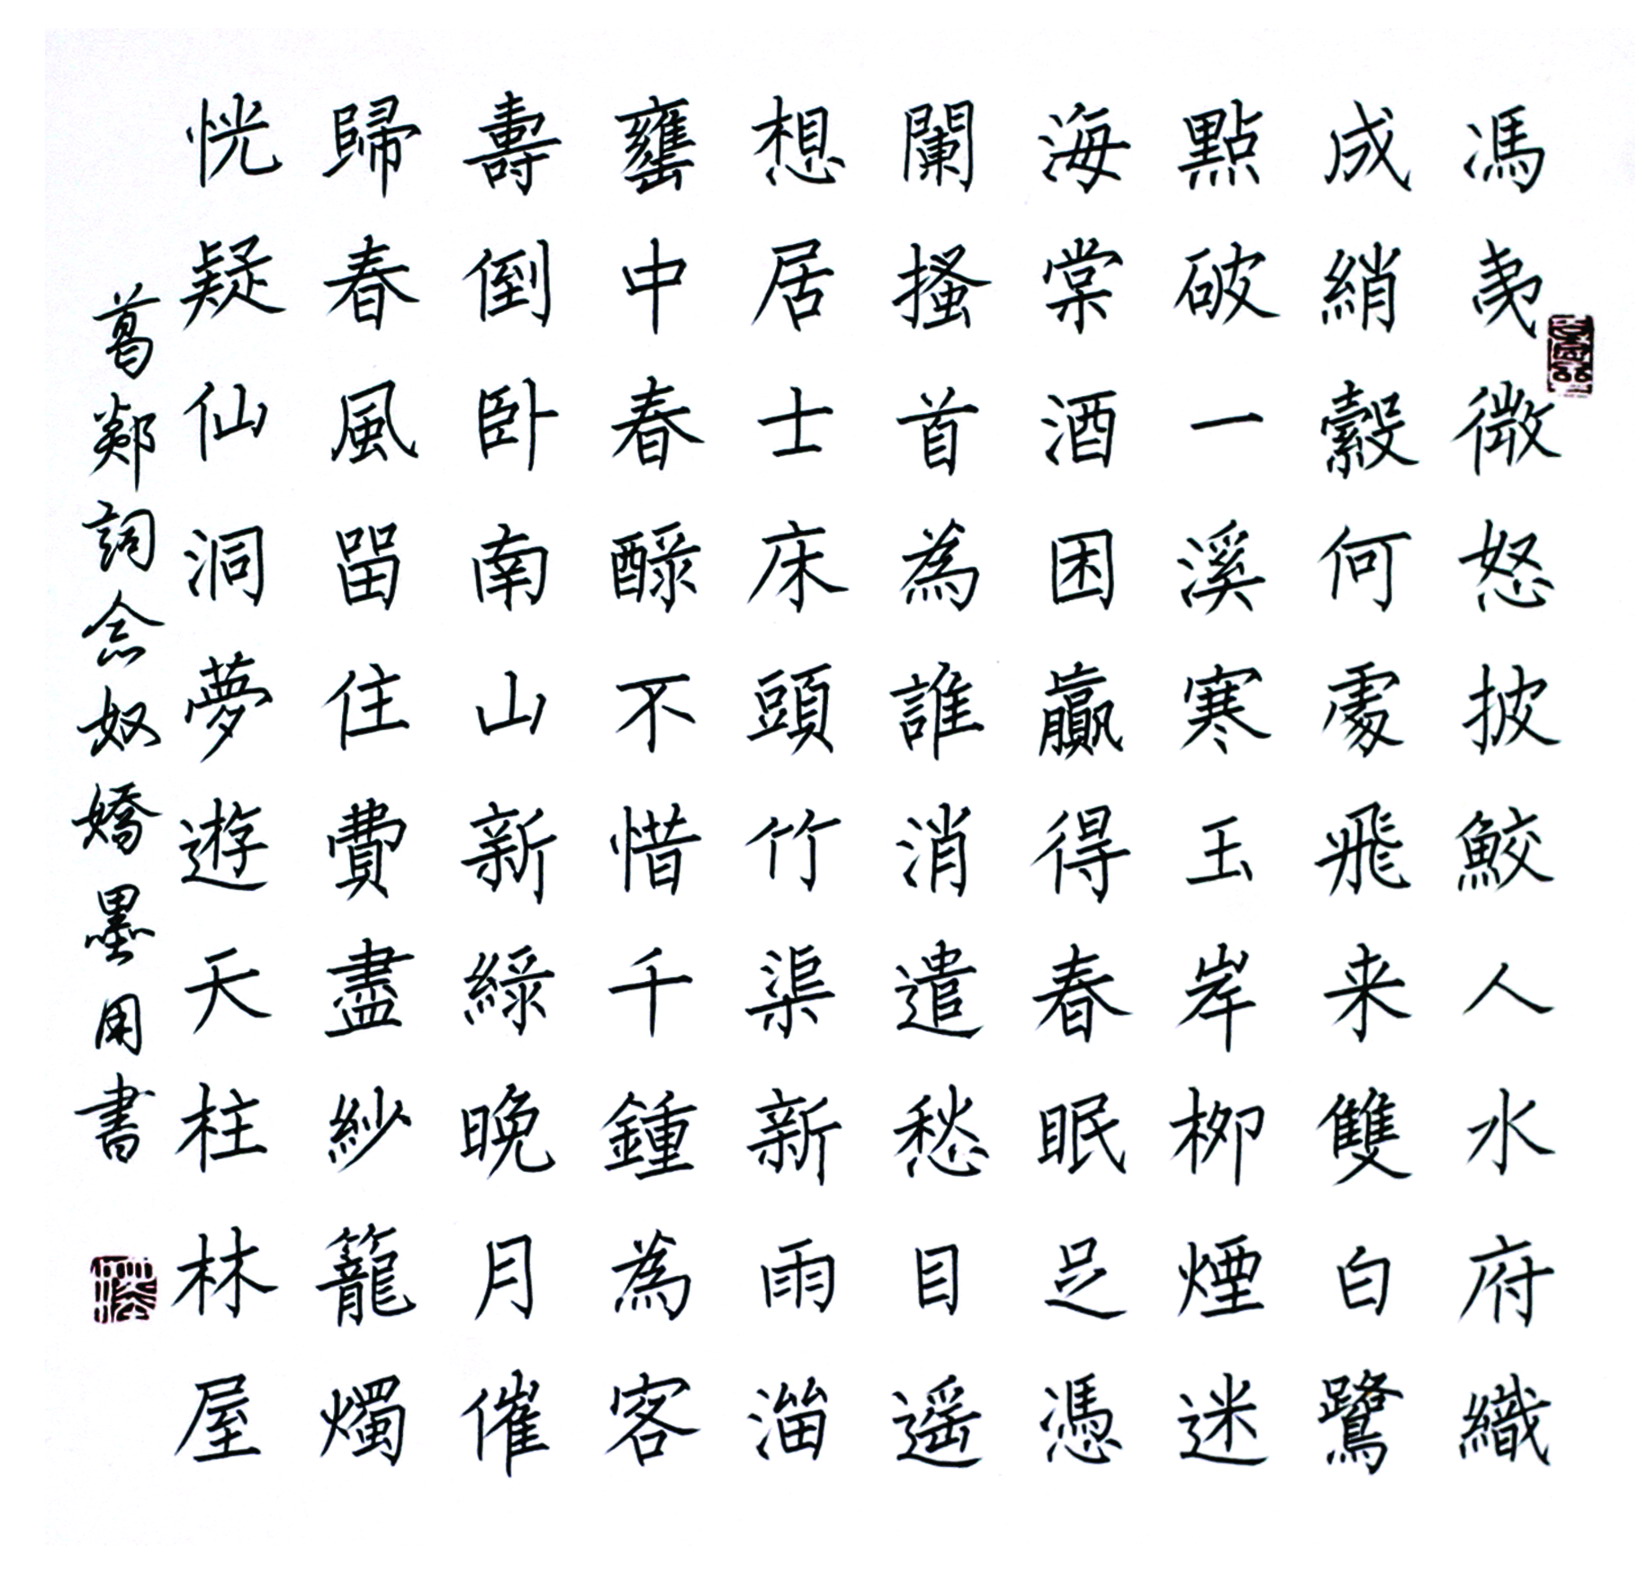 馮夷微怒披鮫人水府織
成綃縠何處飛来雙白鷺
點破一溪寒玉岸栁煙迷
海棠酒困贏得春眠足憑
闌搔首為誰消遣愁目遥
想居士床頭竹渠新雨溜
罋中春醁不惜千鍾為客
壽倒卧南山新綠晚月催
歸春風留住費盡紗籠燭
恍疑仙洞夢遊天柱林屋
葛郯詞念奴嬌墨用書